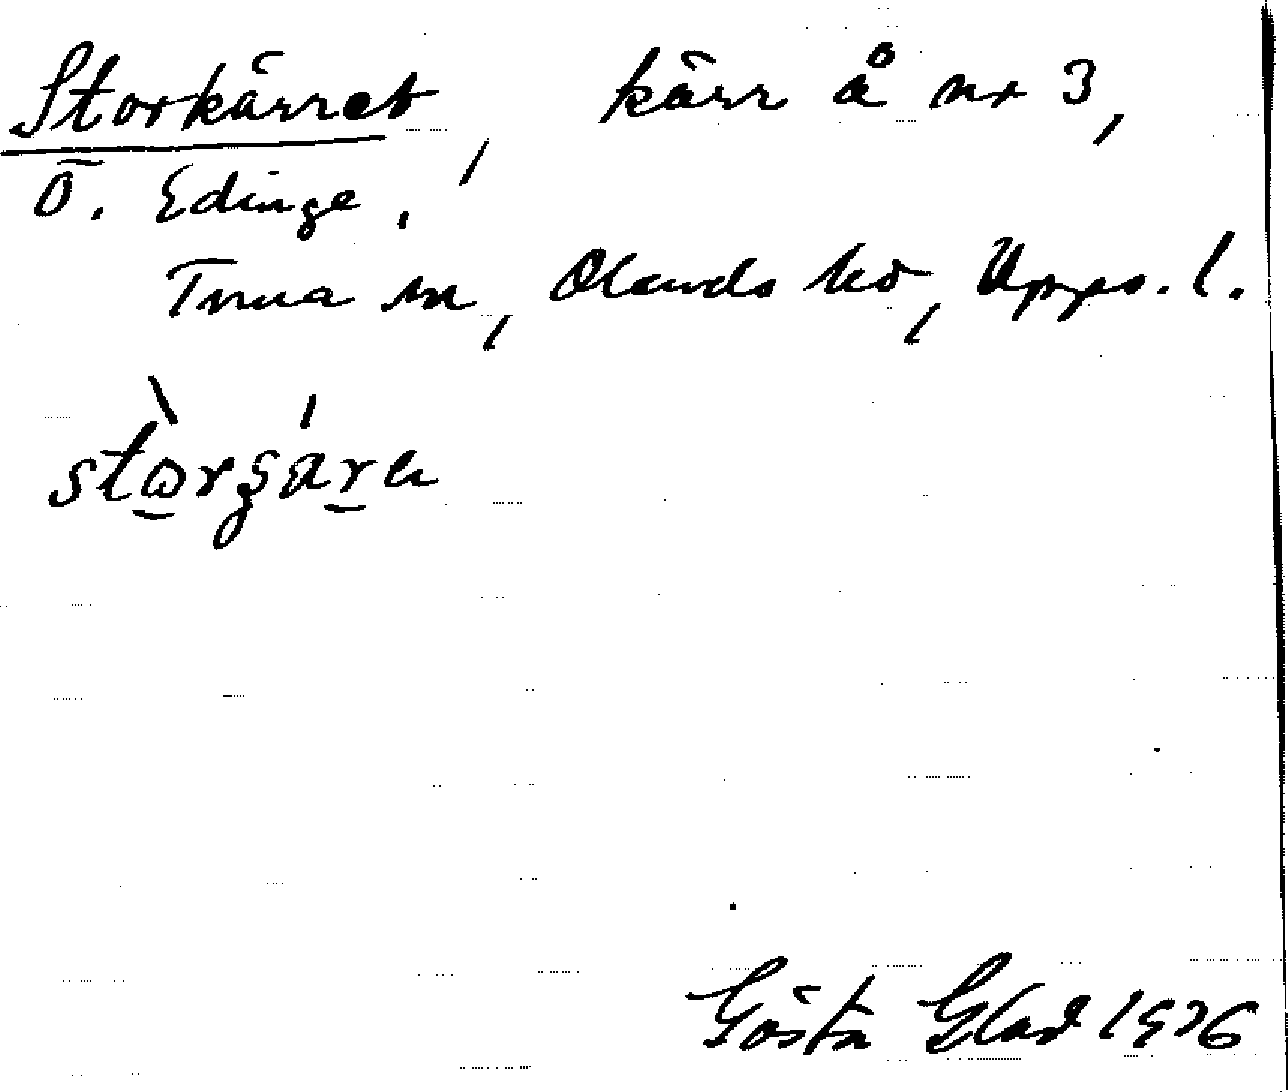 Storkärret, kärr å nr 3,
Ö. Edinge,
Tuna sn, Olands hd, Upps. l.
Gösta Glad 1926